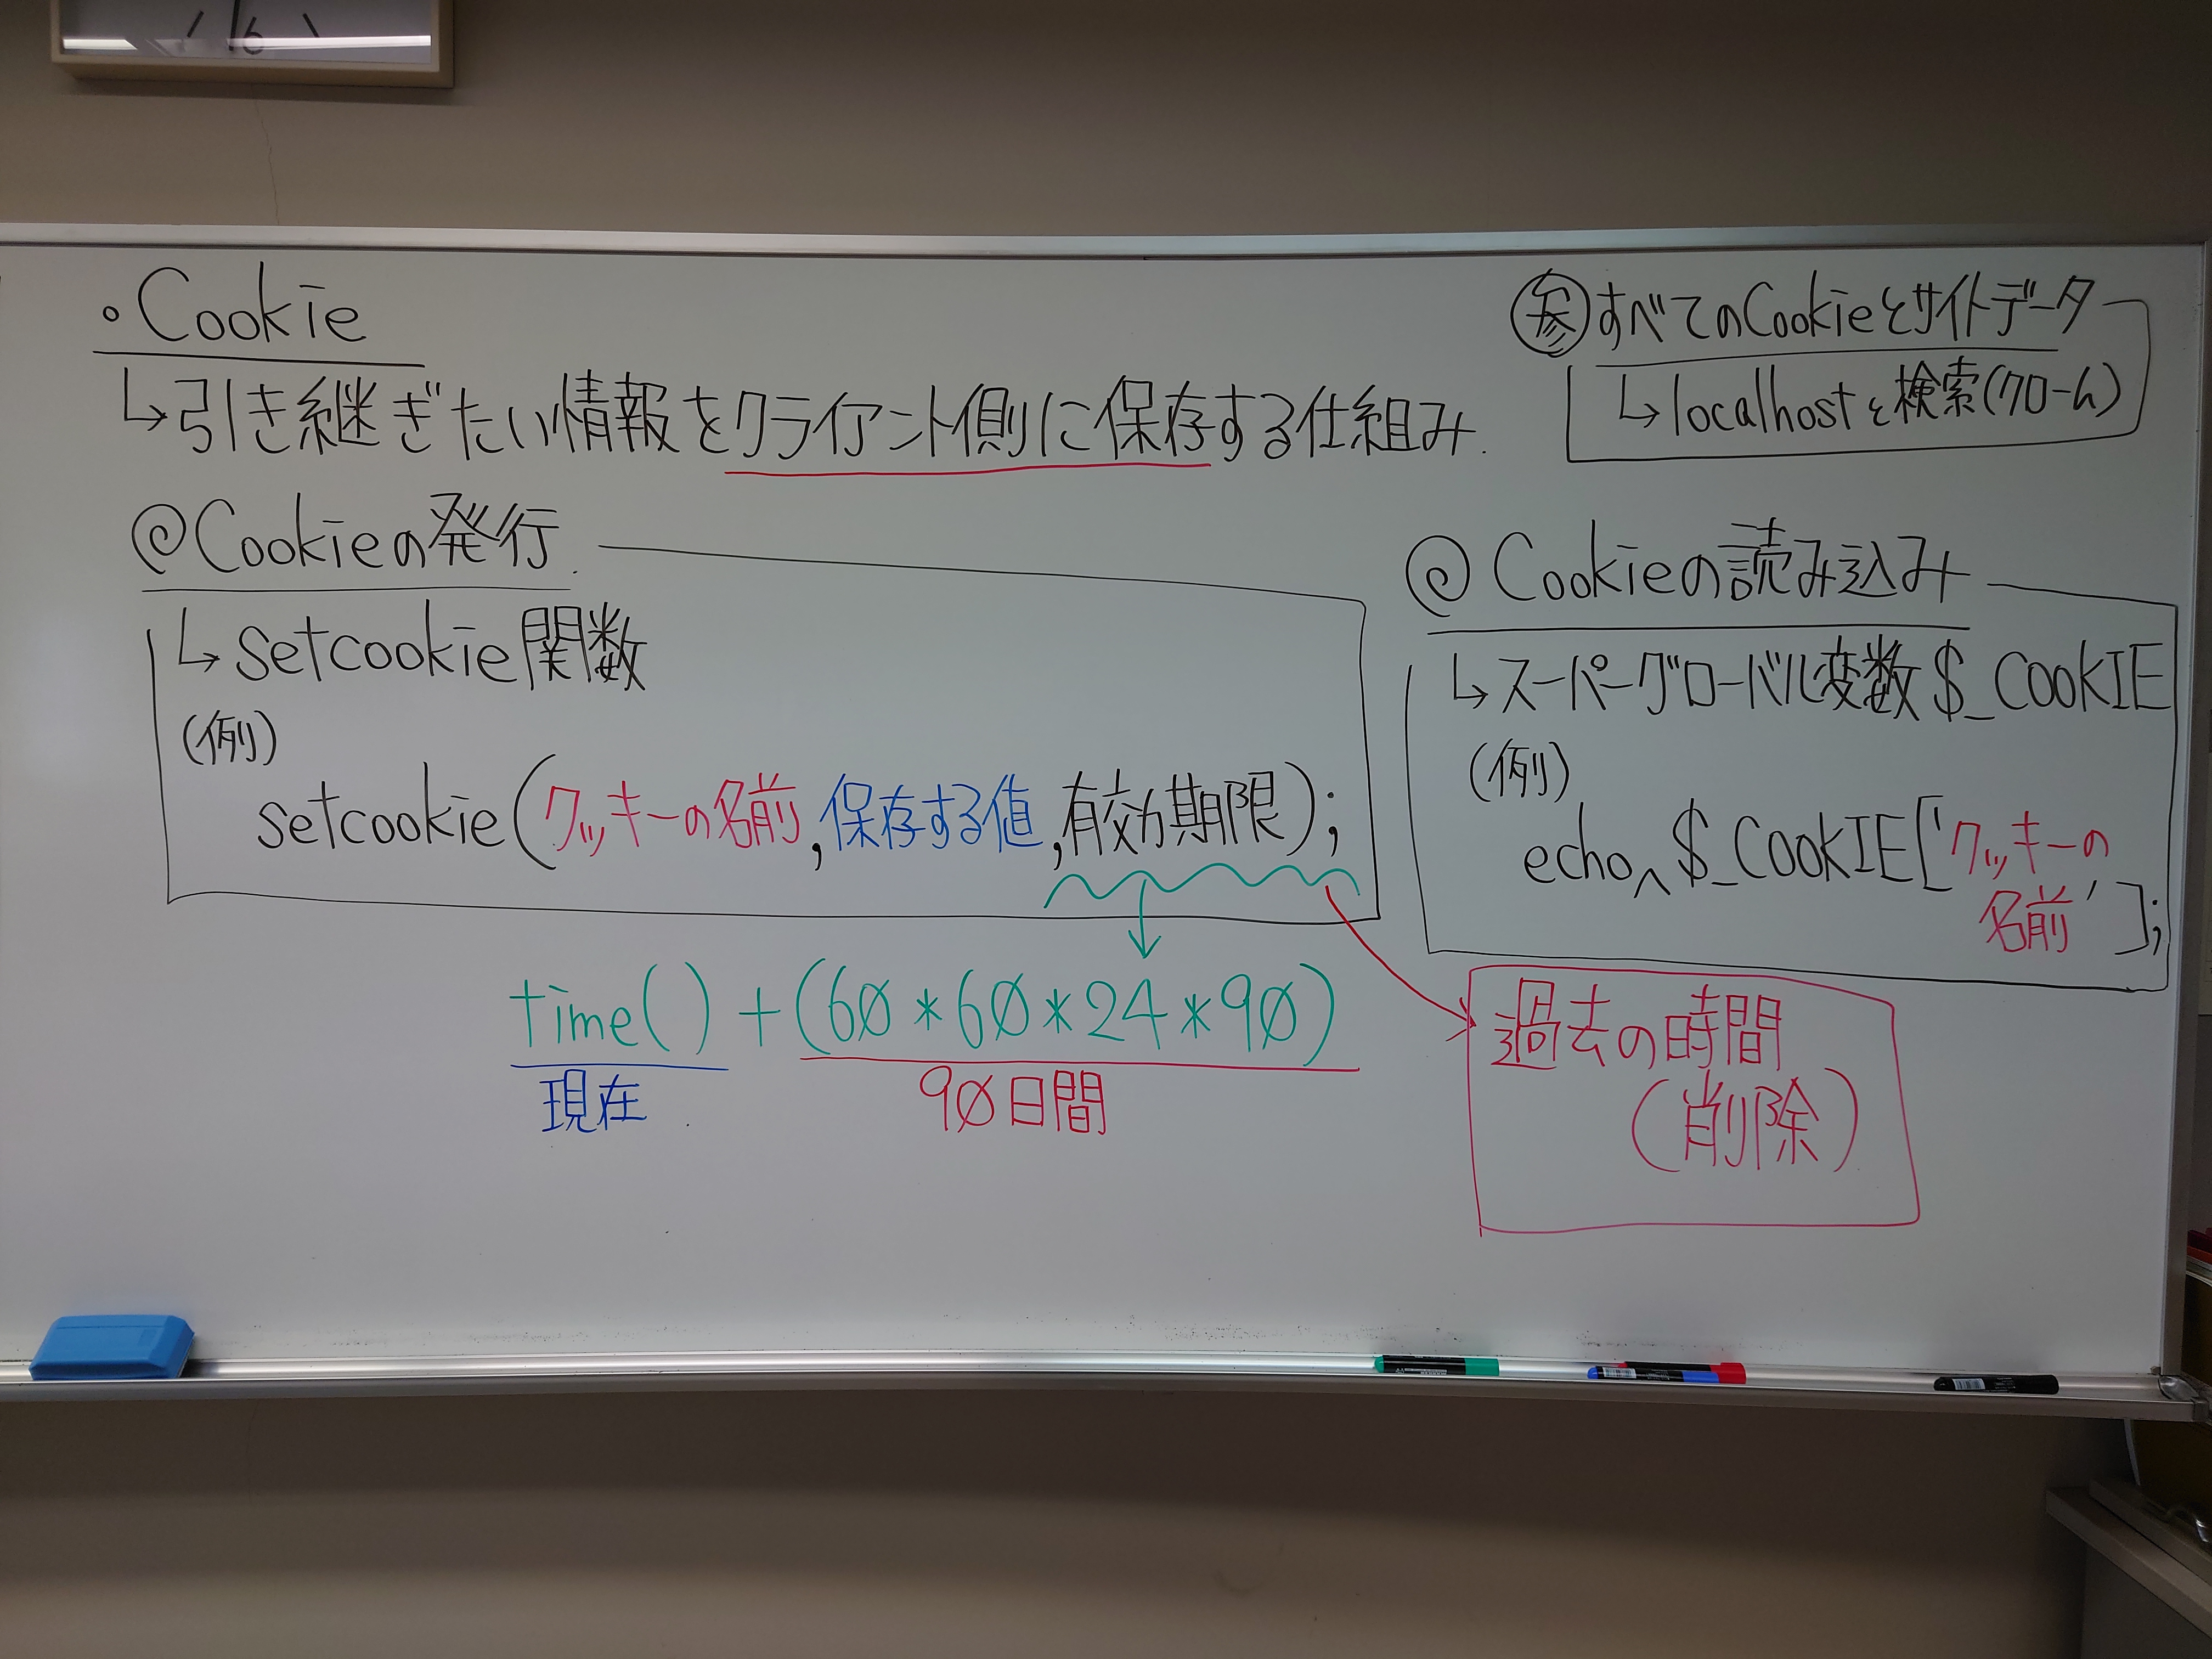 6
・Cookie
↳引き継ぎたい情報をクライアント側に保存する仕組み.
参 すべてのCookieとサイトデータ
↳localhostと検索(クローム)
@Cookieの発行.
↳setcookie関数
(例)
setcookie(クッキーの名前,保存する値,有効期限);
time() + (60*60*24*90)
現在
90日間
@Cookieの読み込み
↳スーパーグローバル変数$_COOKIE
(例)
echo^$_COOKIE['クッキーの
名前'];
過去の時間
(削除)